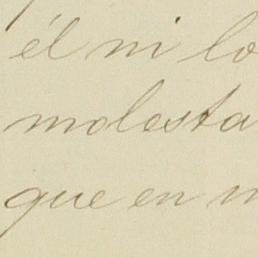 él ni lo
molesta
que en